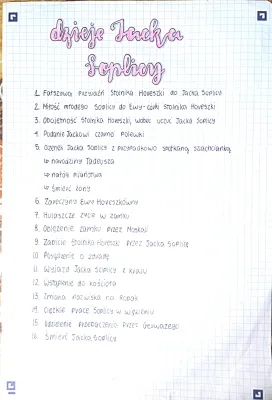 dzieje Jacka
Soplicy
1. Fałszywa przyjaźń Stolnika Horeszki do Jacka Soplicy
2. Miłość młodego Soplicy do Ewy-córki Stolnika Horeszki
3. Obojętność Stolnika Horeszki, wobec uczuć Jacka Soplicy
4. Podanie Jackowi czarnej polewki
5. Ożenek Jacka Soplicy z przypadkowo spotkaną szlachcianką
↳ narodziny Tadeusza
↳ nałóg pijaństwa
↳ śmierć żony
6. Zaręczyny Ewy Horeszkówny
7. Hulaszcze życie w zamku
8. Oblężenie zamku przez Moskali
9. Zabicie Stolnika Horeszki przez Jacka Soplicę
10. Posądzenie o zdradę
11. Wyjazd Jacka Soplicy z kraju
12. Wstąpienie do kościoła
13. Zmiana nazwiska na Robak
14. Ciężkie prace Soplicy w więzieniu
15. Udzielenie przebaczenia przez Gerwazego
16. Śmierć Jacka Soplicy